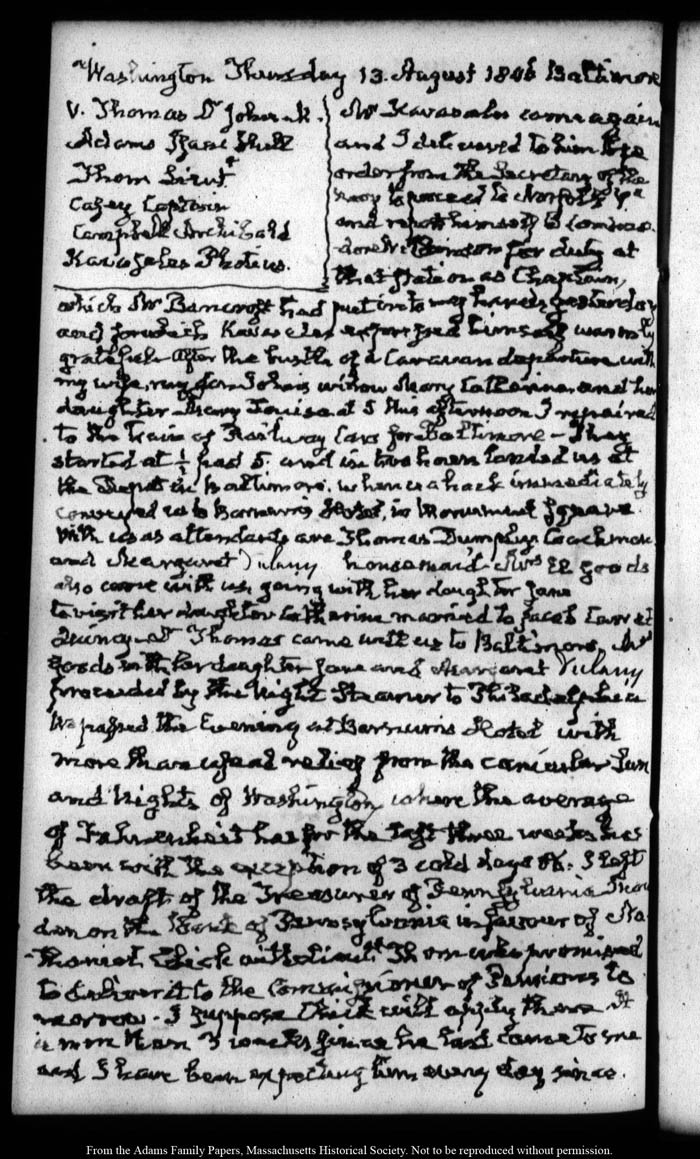 Washington Thursday 13. August 1846 Baltimore
V. Thomas Dr John. R.
Adams Isaac Hull
Thom Lieutt
Casey Captain
Campbell Archibald
Kavasales Photius.
Mr Kavasales came again
and I delivered to him the
order from the Secretary of the
navy to proceed to Norfolk Va
and report himself to Commo-
dore Wilkinson for duty at
that station as Chaplain,
which Mr Bancroft had put into my hands yesterday
and for which Kavasales expressed himself warmly
grateful. After the bustle of a Caravan departure with
my wife, my son John's widow Mary Catherine and her
daughter Mary Louisa at 5 this afternoon I repaired
to the train of Railway Cars for Baltimore – They
started at ½ past 5. and in two hours landed us at
the Depot in Baltimore. whence a hack immediately
conveyed us to Barnum's Hotel, in Monument Square.
With us as attendants are Thomas Dumphy Coachman
and Margaret Dulany housemaid. Mrs goods
also came with us going with her daughter Jane
to visit her daughter Catherine married to Jacob at
Quincy Thomas came with us to Baltimore, Mrs
goods with her daughter Jane and Margaret Dulany
proceeded by the Night Steamer to Philadelphia
We passed the Evening at Barnum's Hotel with
more than usual relief from the canicular Sun
and Nights of Washington, where the average
of Fahrenheit has for the last three weeks has
been with the exception of 3 cold days 86. I left
the draft of the Treasurer of Pennsylvania
on the Bank of Pennsylvania in favour of Na-
thaniel with Lieutt Thom who promised
to deliver it to the Commissioner of Pensions to
morrow. I suppose will apply there It
is more than 3 weeks since he last came to me
and I have been expecting him every day since.
From the Adams Family Papers, Massachusetts Historical Society. Not to be reproduced without permission.